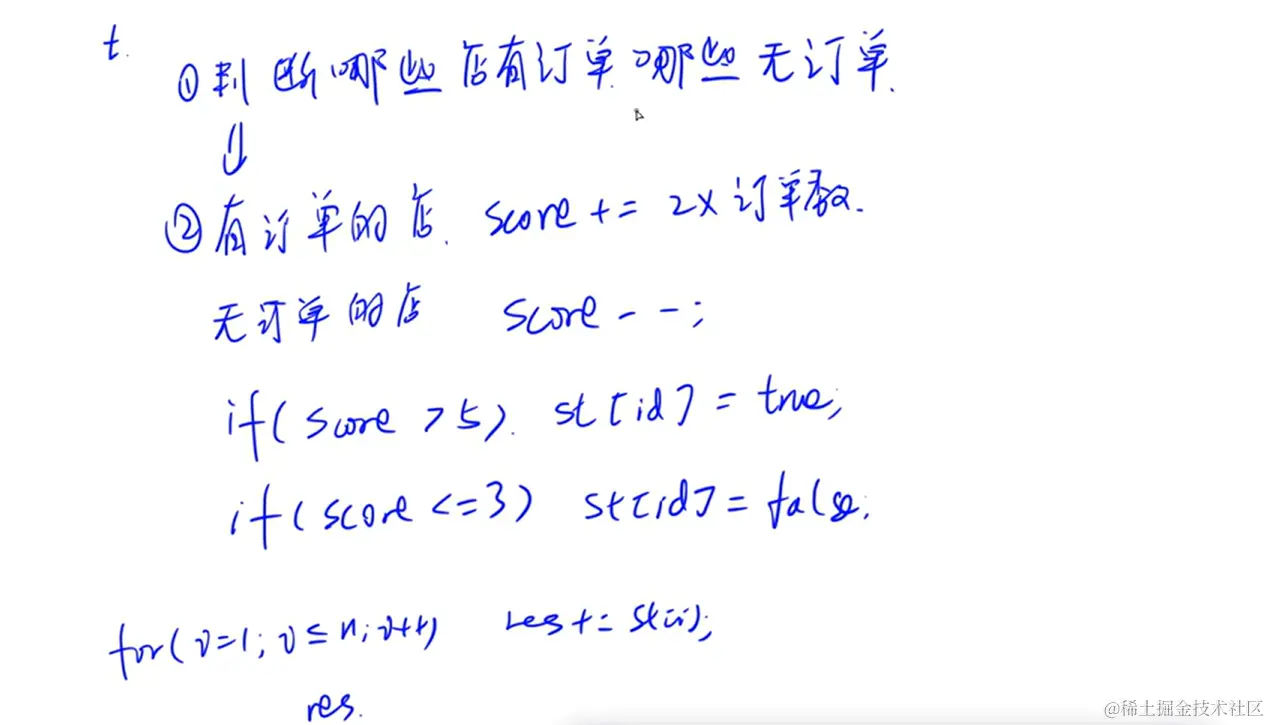 t.
①判断哪些店有订单,哪些无订单.
↓
②有订单的店. score += 2× 订单数.
无订单的店 score--;
if(score >5). st[id] = true;
if(score <=3) st[id] = false;
for(i=1; i≤n; i++) res += st[i];
res.
@稀土掘金技术社区